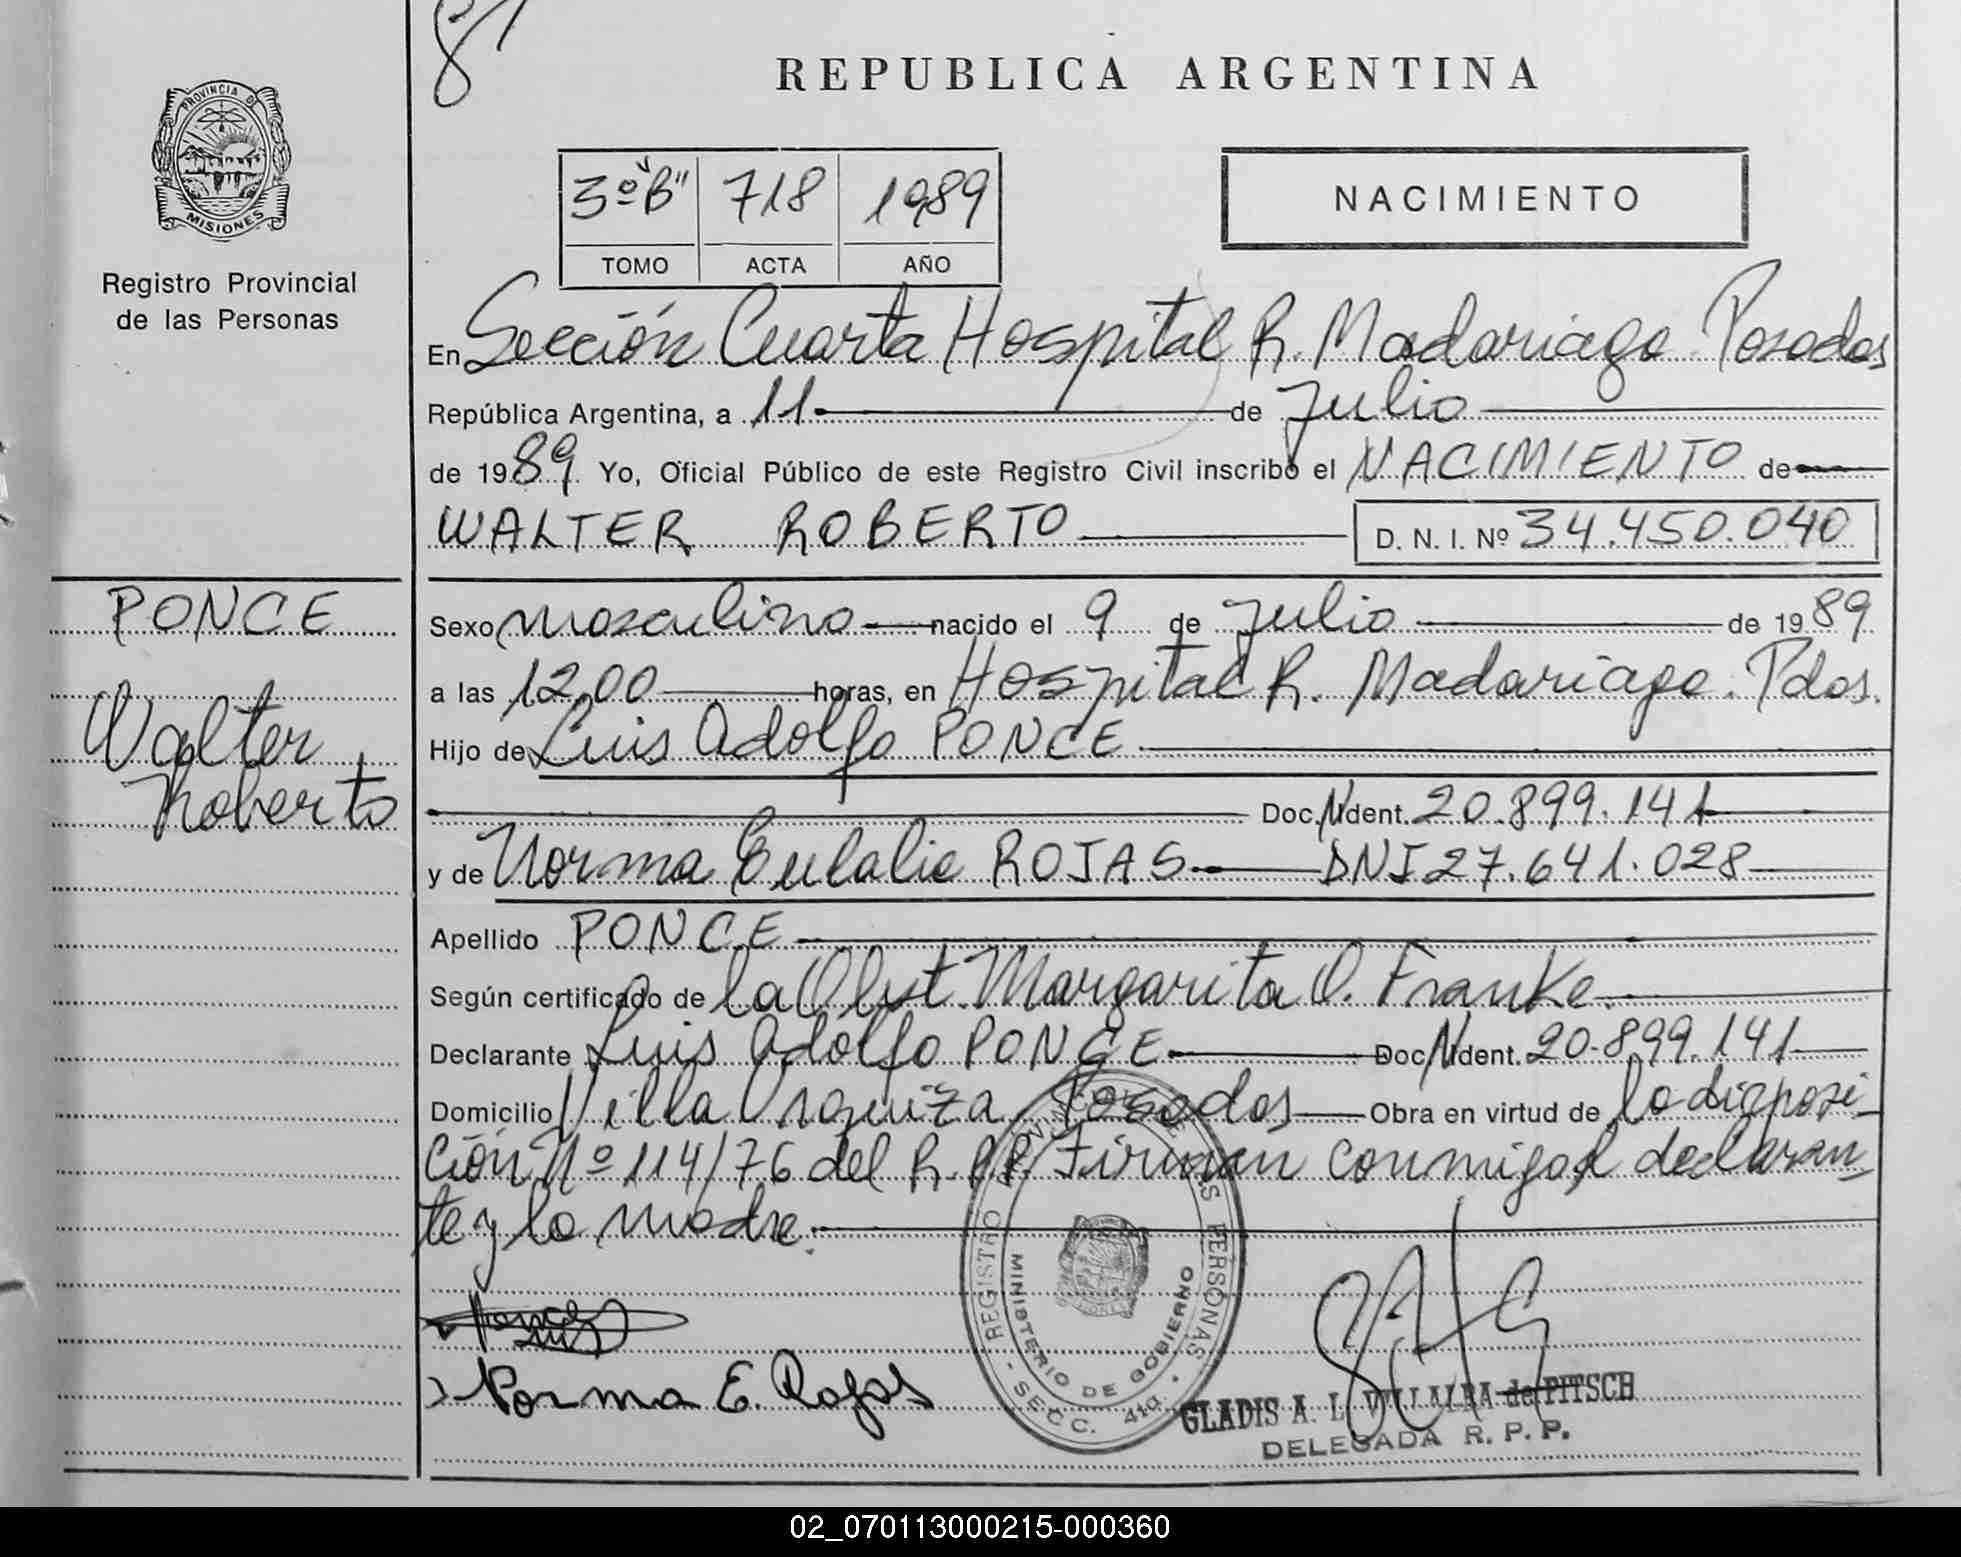 REPUBLICA ARGENTINA
PROVINCIA DE
MISIONES
Registro Provincial
de las Personas
3º "B" 718 1989
TOMO ACTA AÑO
NACIMIENTO
En Sección Cuarta Hospital R. Madariaga. Posadas
República Argentina, a 11 de Julio
de 1989. Yo, Oficial Público de este Registro Civil inscribo el NACIMIENTO de
WALTER ROBERTO D. N. I. Nº 34.450.040
PONCE
Walter
Roberto
Sexo masculino nacido el 9 de Julio de 1989
a las 12,00 horas, en Hospital R. Madariaga. Pdas.
Hijo de Luis Adolfo PONCE
Doc. N Ident. 20.899.141
y de Norma Eulalia ROJAS. DNI 27.641.028
Apellido PONCE
Según certificado de la Obst. Margarita O. Franke.
Declarante Luis Adolfo PONCE Doc. N Ident. 20.899.141
Domicilio Villa Urquiza Posadas Obra en virtud de la disposi-
ción Nº 114/76 del R.P.P. Firman conmigo el declaran
te y la madre.
REGISTRO PROVINCIAL DE LAS PERSONAS
MINISTERIO DE GOBIERNO
- SECC. 4ta. -
Ponce
Luis
Norma E. Rojas
GLADIS A. L. VILLALBA de PITSCH
DELEGADA R. P. P.
02_070113000215-000360